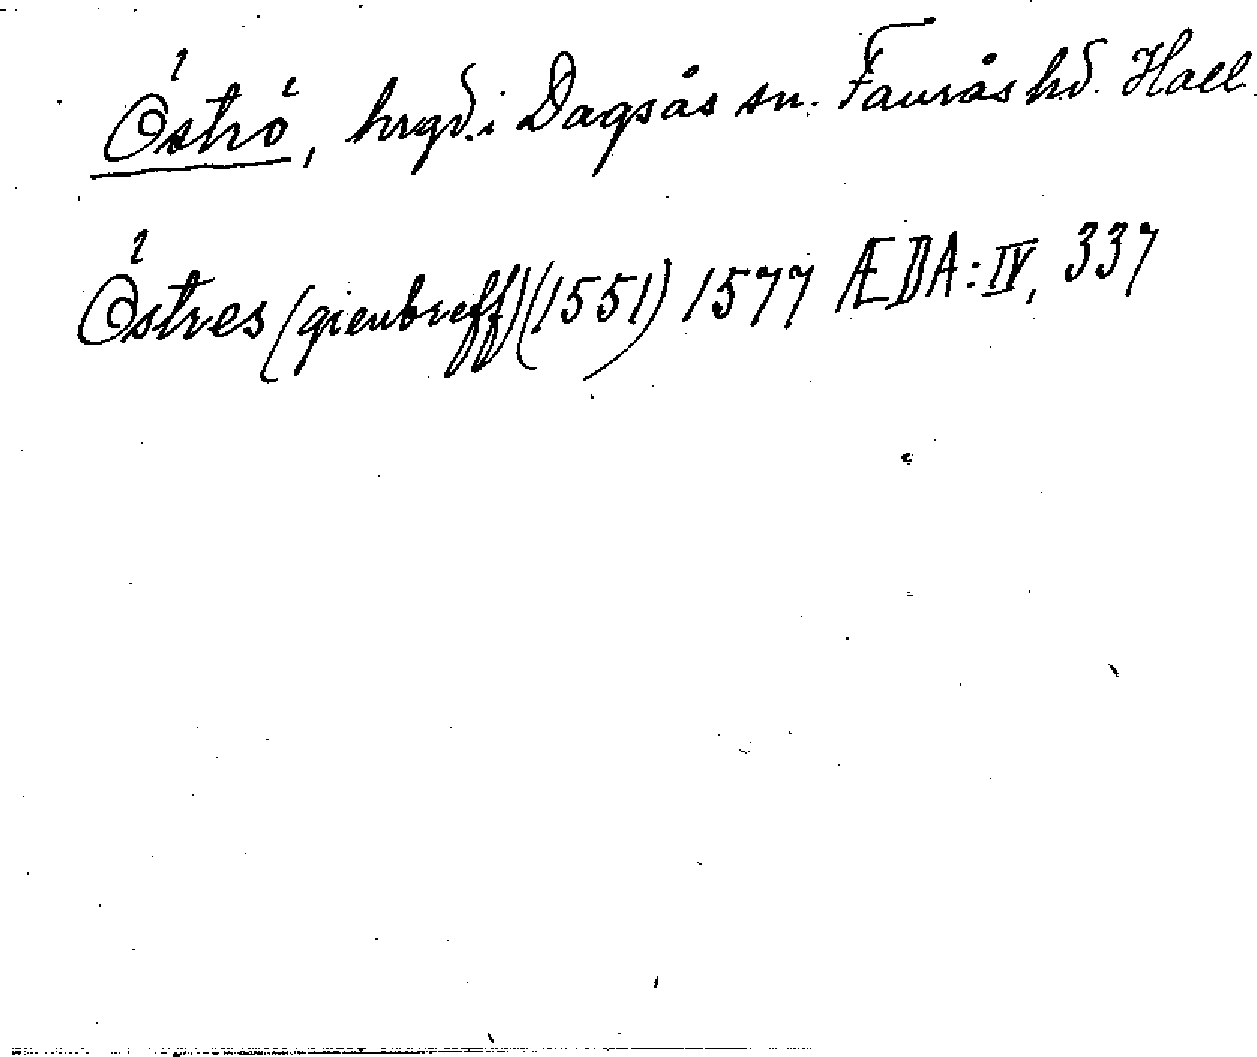 Óströ, hrgd. i Dagsås sn. Faurås hd. Hall.
Óstres (gienbreff) (1551) 1577 ÆDA: IV, 337